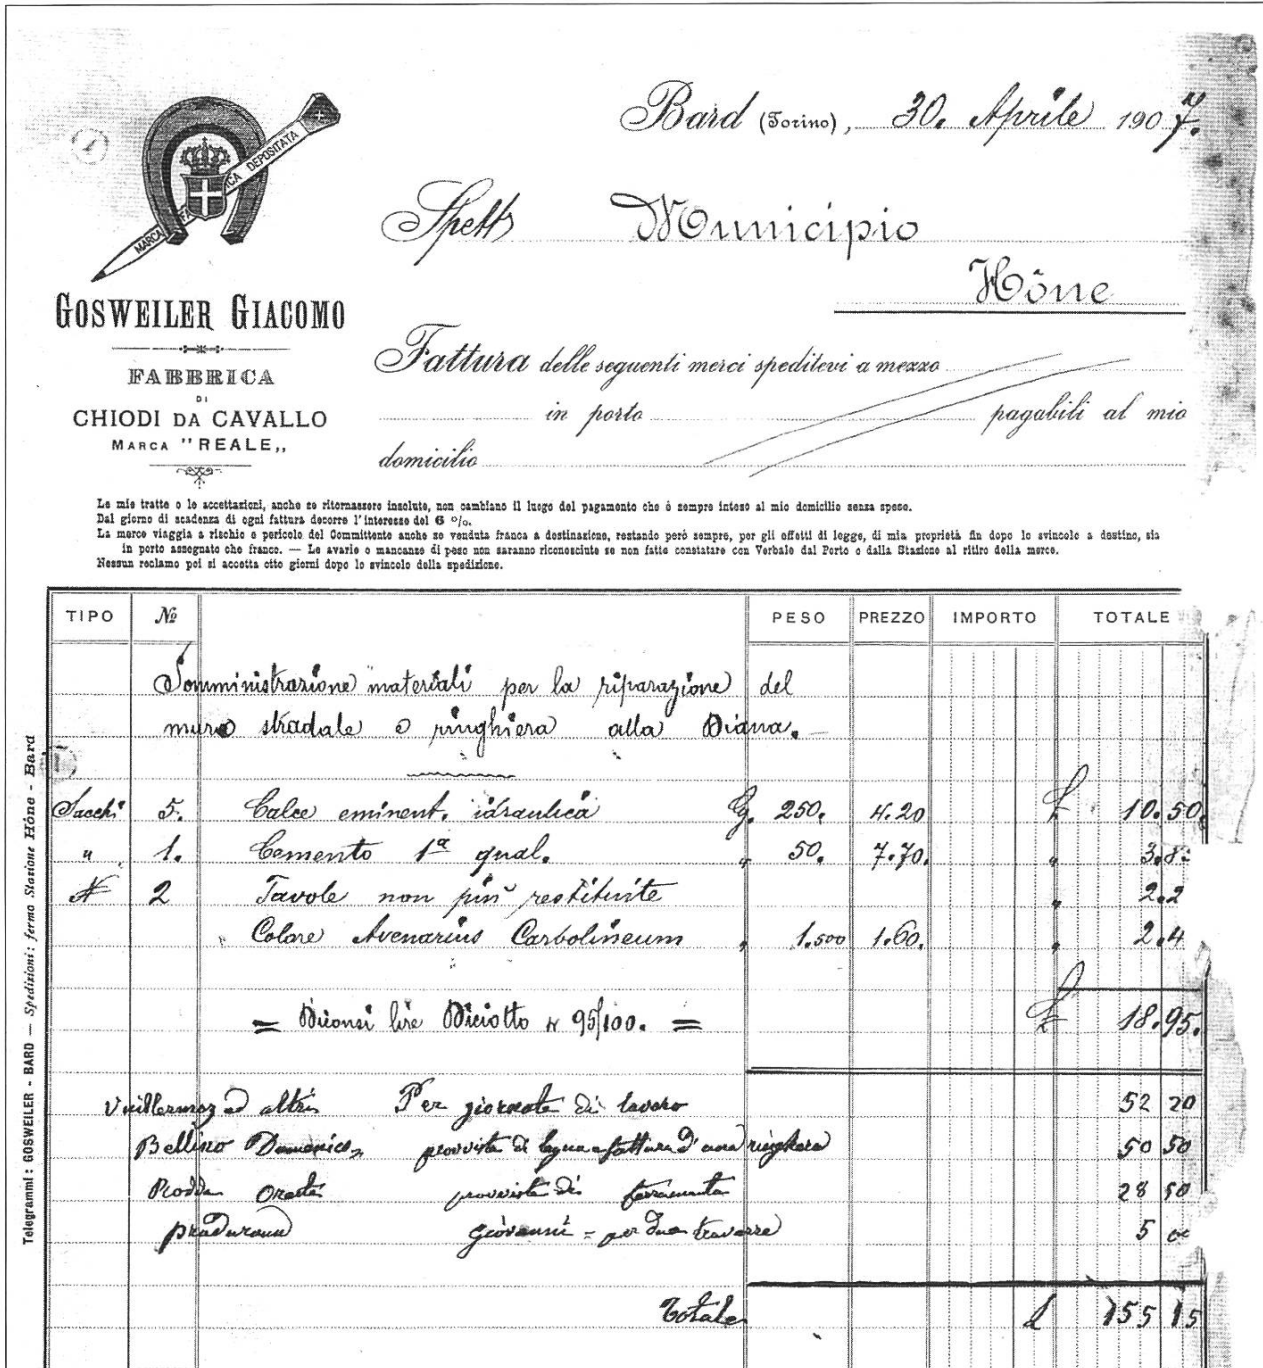 Bard (Torino), 30. Aprile 1907.
MARCA DI FABBRICA DEPOSITATA
Spett Municipio
Hône
GOSWEILER GIACOMO
FABBRICA
DI
CHIODI DA CAVALLO
MARCA "REALE„
Fattura delle seguenti merci speditevi a mezzo
in porto pagabili al mio
domicilio
Le mie tratte o le accettazioni, anche se ritornassero insolute, non cambiano il luogo del pagamento che è sempre inteso al mio domicilio senza spese.
Dal giorno di scadenza di ogni fattura decorre l'interesse del 6 %.
La merce viaggia a rischio e pericolo del Committente anche se venduta franca a destinazione, restando però sempre, per gli effetti di legge, di mia proprietà fin dopo lo svincolo a destino, sia
in porto assegnato che franco. — Le avarie o mancanze di peso non saranno riconosciute se non fatte constatare con Verbale dal Porto o dalla Stazione al ritiro della merce.
Nessun reclamo poi si accetta otto giorni dopo lo svincolo della spedizione.
TIPO № PESO PREZZO IMPORTO TOTALE
Somministrazione materiali per la riparazione del
muro stradale e ringhiera alla Diana.
Sacchi 5. Calce eminent. idraulica Kg. 250. 4.20 £ 10.50
" 1. Cemento 1ª qual. " 50. 7.70. " 3.8
N 2 Tavole non più restituite " 2.2
Colore Avenarius Carbolineum " 1.500 1.60. " 2.4
= Diconsi lire Diciotto e 95/100. = £ 18.95.
Vuillermoz ed altri Per giornate di lavoro 52 20
Bellino Domenico, provvista di legna e fattura d'una ringhiera 50 50
Prodda Oreste provvista di ferramenta 28 50
Giovanni = per due traverse 5
Totale £ 155 15
Telegrammi: GOSWEILER - BARD — Spedizioni: ferma Stazione Hône - Bard